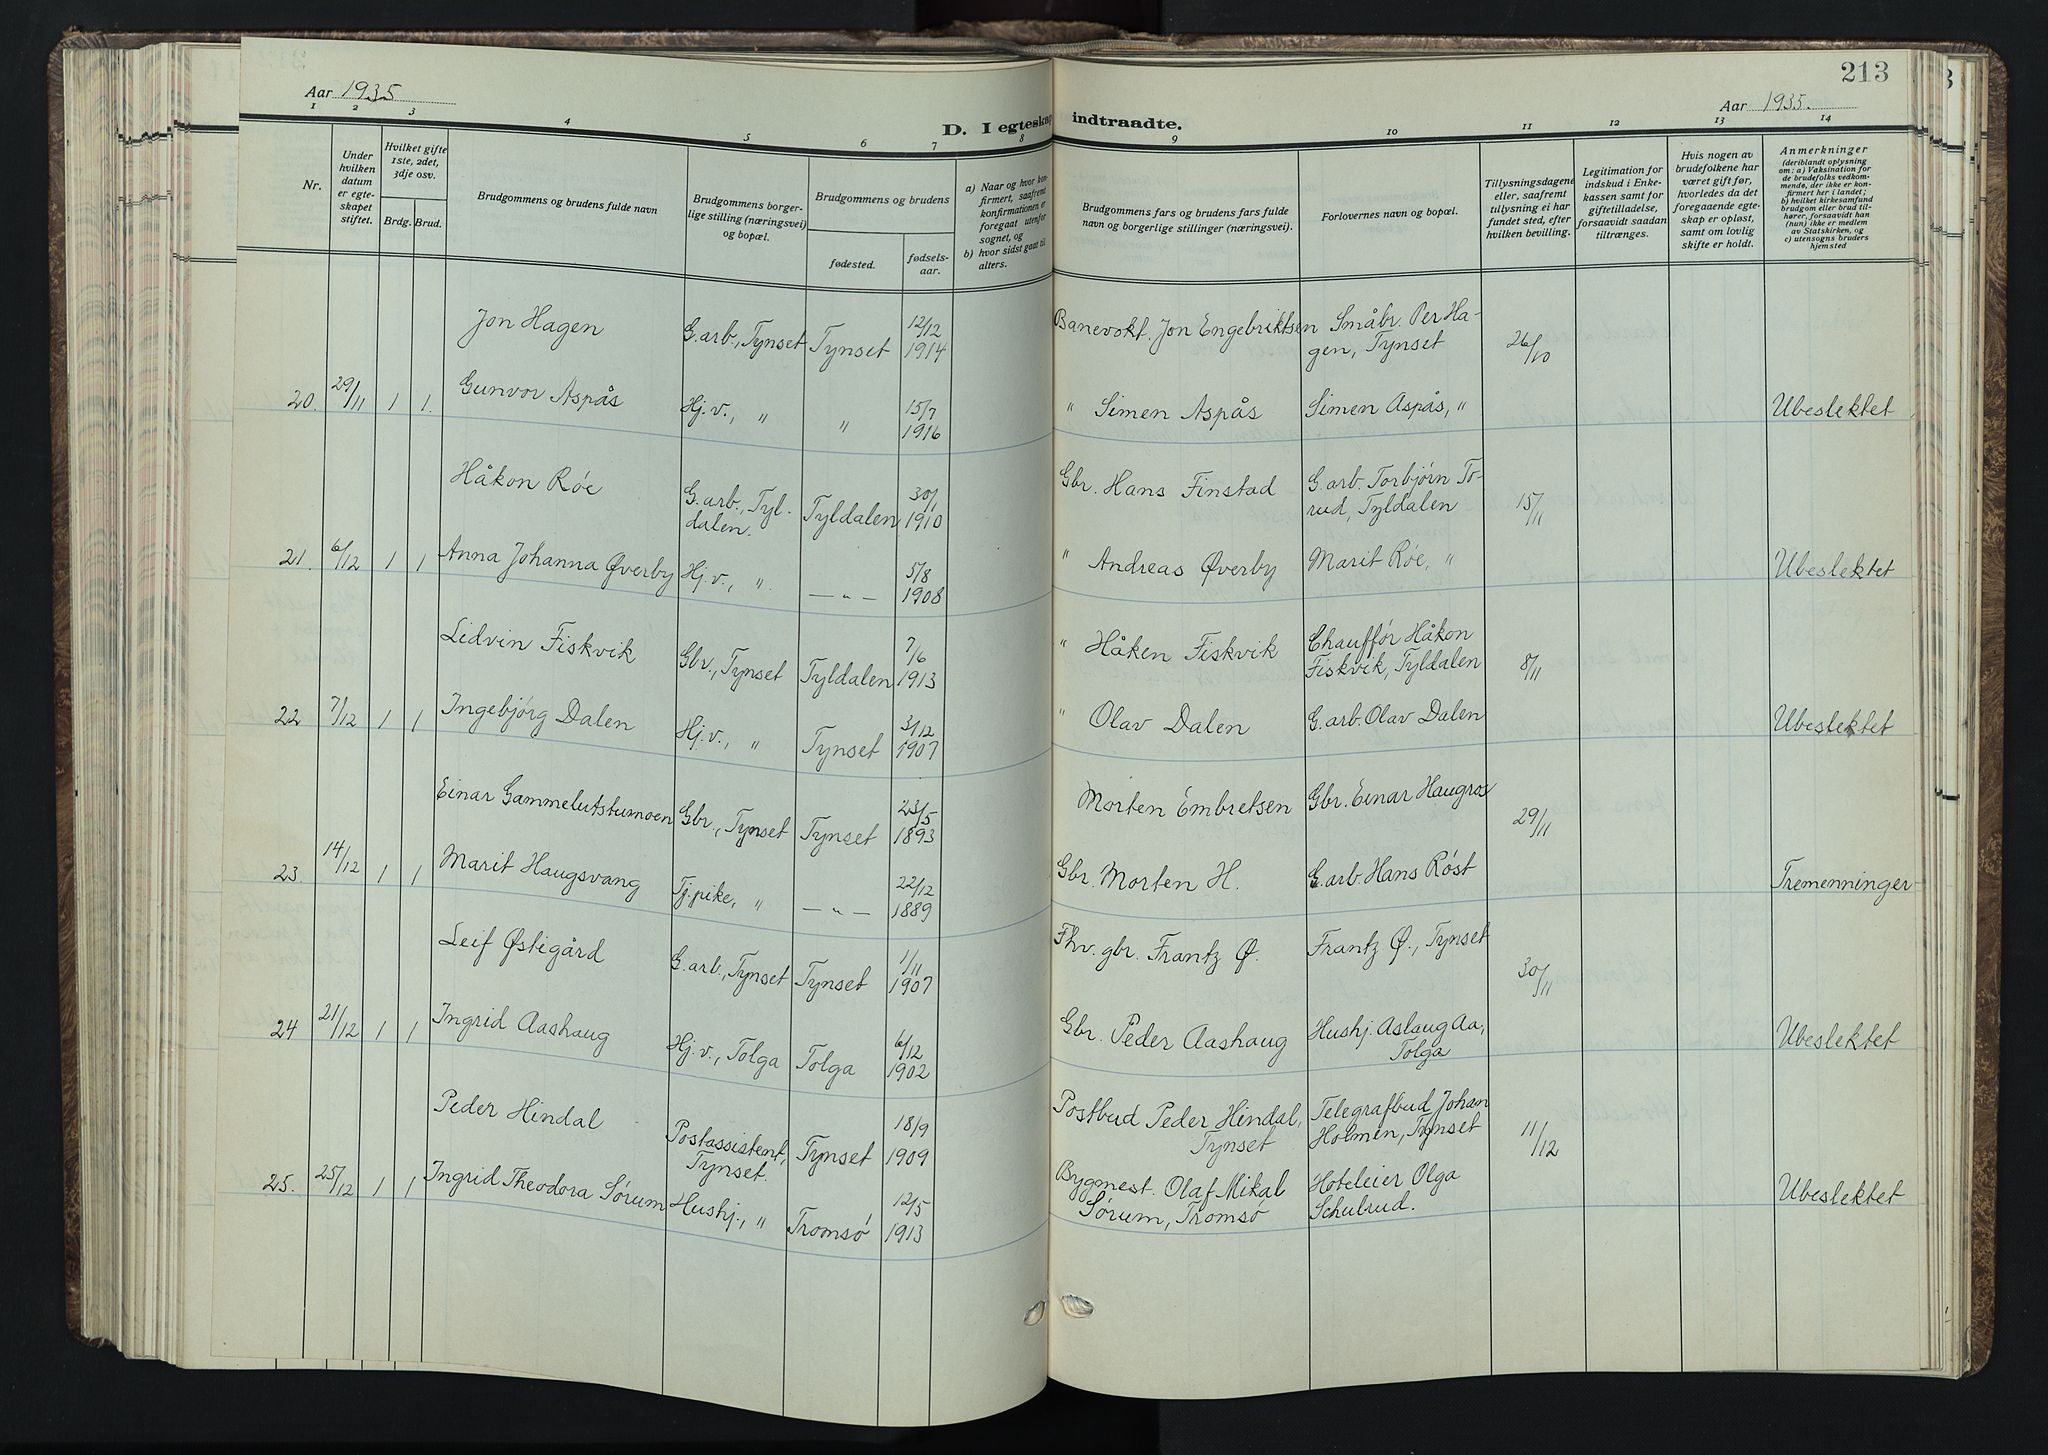 213
Aar 1935
Aar 1935.
D. I egteskap indtraadte.
1 2 3 4 5 6 7 8 9 10 11 12 13 14
Nr.
Under
hvilken
datum
er egte-
skapet
stiftet.
Hvilket gifte
1ste, 2det,
3dje osv.
Brdg. Brud.
Brudgommens og brudens fulde navn
Brudgommens borger-
lige stilling (næringsvei)
og bopæl.
Brudgommens og brudens
fødested.
fødsels-
aar.
a) Naar og hvor kon-
firmert, saafremt
konfirmationen er
foregaat utenfor
sognet, og
b) hvor sidst gaat til
alters.
Brudgommens fars og brudens fars fulde
navn og borgerlige stillinger (næringsvei).
Forlovernes navn og bopæl.
Tillysningsdagene
eller, saafremt
tillysning ei har
fundet sted, efter
hvilken bevilling.
Legitimation for
indskud i Enke-
kassen samt for
giftetilladelse,
forsaavidt saadan
tiltrænges.
Hvis nogen av
brudefolkene har
været gift før,
hvorledes da det
foregaaende egte-
skap er opløst,
samt om lovlig
skifte er holdt.
Anmerkninger
(deriblandt oplysning
om: a) Vaksination for
de brudefolks vedkom-
mende, der ikke er kon-
firmert her i landet;
b) hvilket kirkesamfund
brudgom eller brud til-
hører, forsaavidt han
(hun) ikke er medlem
av Statskirken, og
c) utensogns bruders
hjemsted
Jon Hagen G.arb., Tynset Tynset 12/12 1914 Banevokt. Jon Engebriktsen Småbr. Per Ha-
gen, Tynset 26/10
20. 29/11 1 1. Gunvor Aspås Hj.v., " " 15/7 1916 " Simen Aspås Simen Aspås, " Ubeslektet
Håkon Røe G.arb., Tyl-
dalen. Tyldalen 30/1 1910 Gbr. Hans Finstad G.arb. Torbjørn To-
rud, Tyldalen 15/11
21. 6/12 1 1 Anna Johanna Øverby Hj.v., " — " — 5/8 1908 " Andreas Øverby Marit Røe, " Ubeslektet
Lidvin Fiskvik Gbr., Tynset Tyldalen 7/6 1913 " Håken Fiskvik Chauffør Håkon
Fiskvik, Tyldalen 8/11
22 7/12 1 1 Ingebjørg Dalen Hj.v., " Tynset 3/12 1907 " Olav Dalen G.arb. Olav Dalen Ubeslektet
Einar Gammelutstumoen Gbr., Tynset Tynset 23/5 1893 Morten Embretsen Gbr. Einar Haugros 29/11
23. 14/12 1 1 Marit Haugsvang Tj.pike, " — " — 22/12 1889 Gbr. Morten H. G.arb. Hans Røst Tremenninger
Leif Østigård G.arb., Tynset Tynset 1/11 1907 Fhv. gbr. Frantz Ø. Frantz Ø., Tynset 30/11
24 21/12 1 1 Ingrid Aashaug Hj.v., Tolga Tolga 6/12 1902 Gbr. Peder Aashaug Hushj. Aslaug Aa,
Tolga Ubeslektet
Peder Hindal Postassistent,
Tynset. Tynset 18/9 1909 Postbud Peder Hindal,
Tynset Telegrafbud Johan
Holmen, Tynset 11/12
25. 25/12 1 1 Ingrid Theodora Sørum Hushj., " Tromsø 12/5 1913 Bygmest. Olaf Mikal
Sørum, Tromsø Hoteleier Olga
Schulrud. Ubeslektet